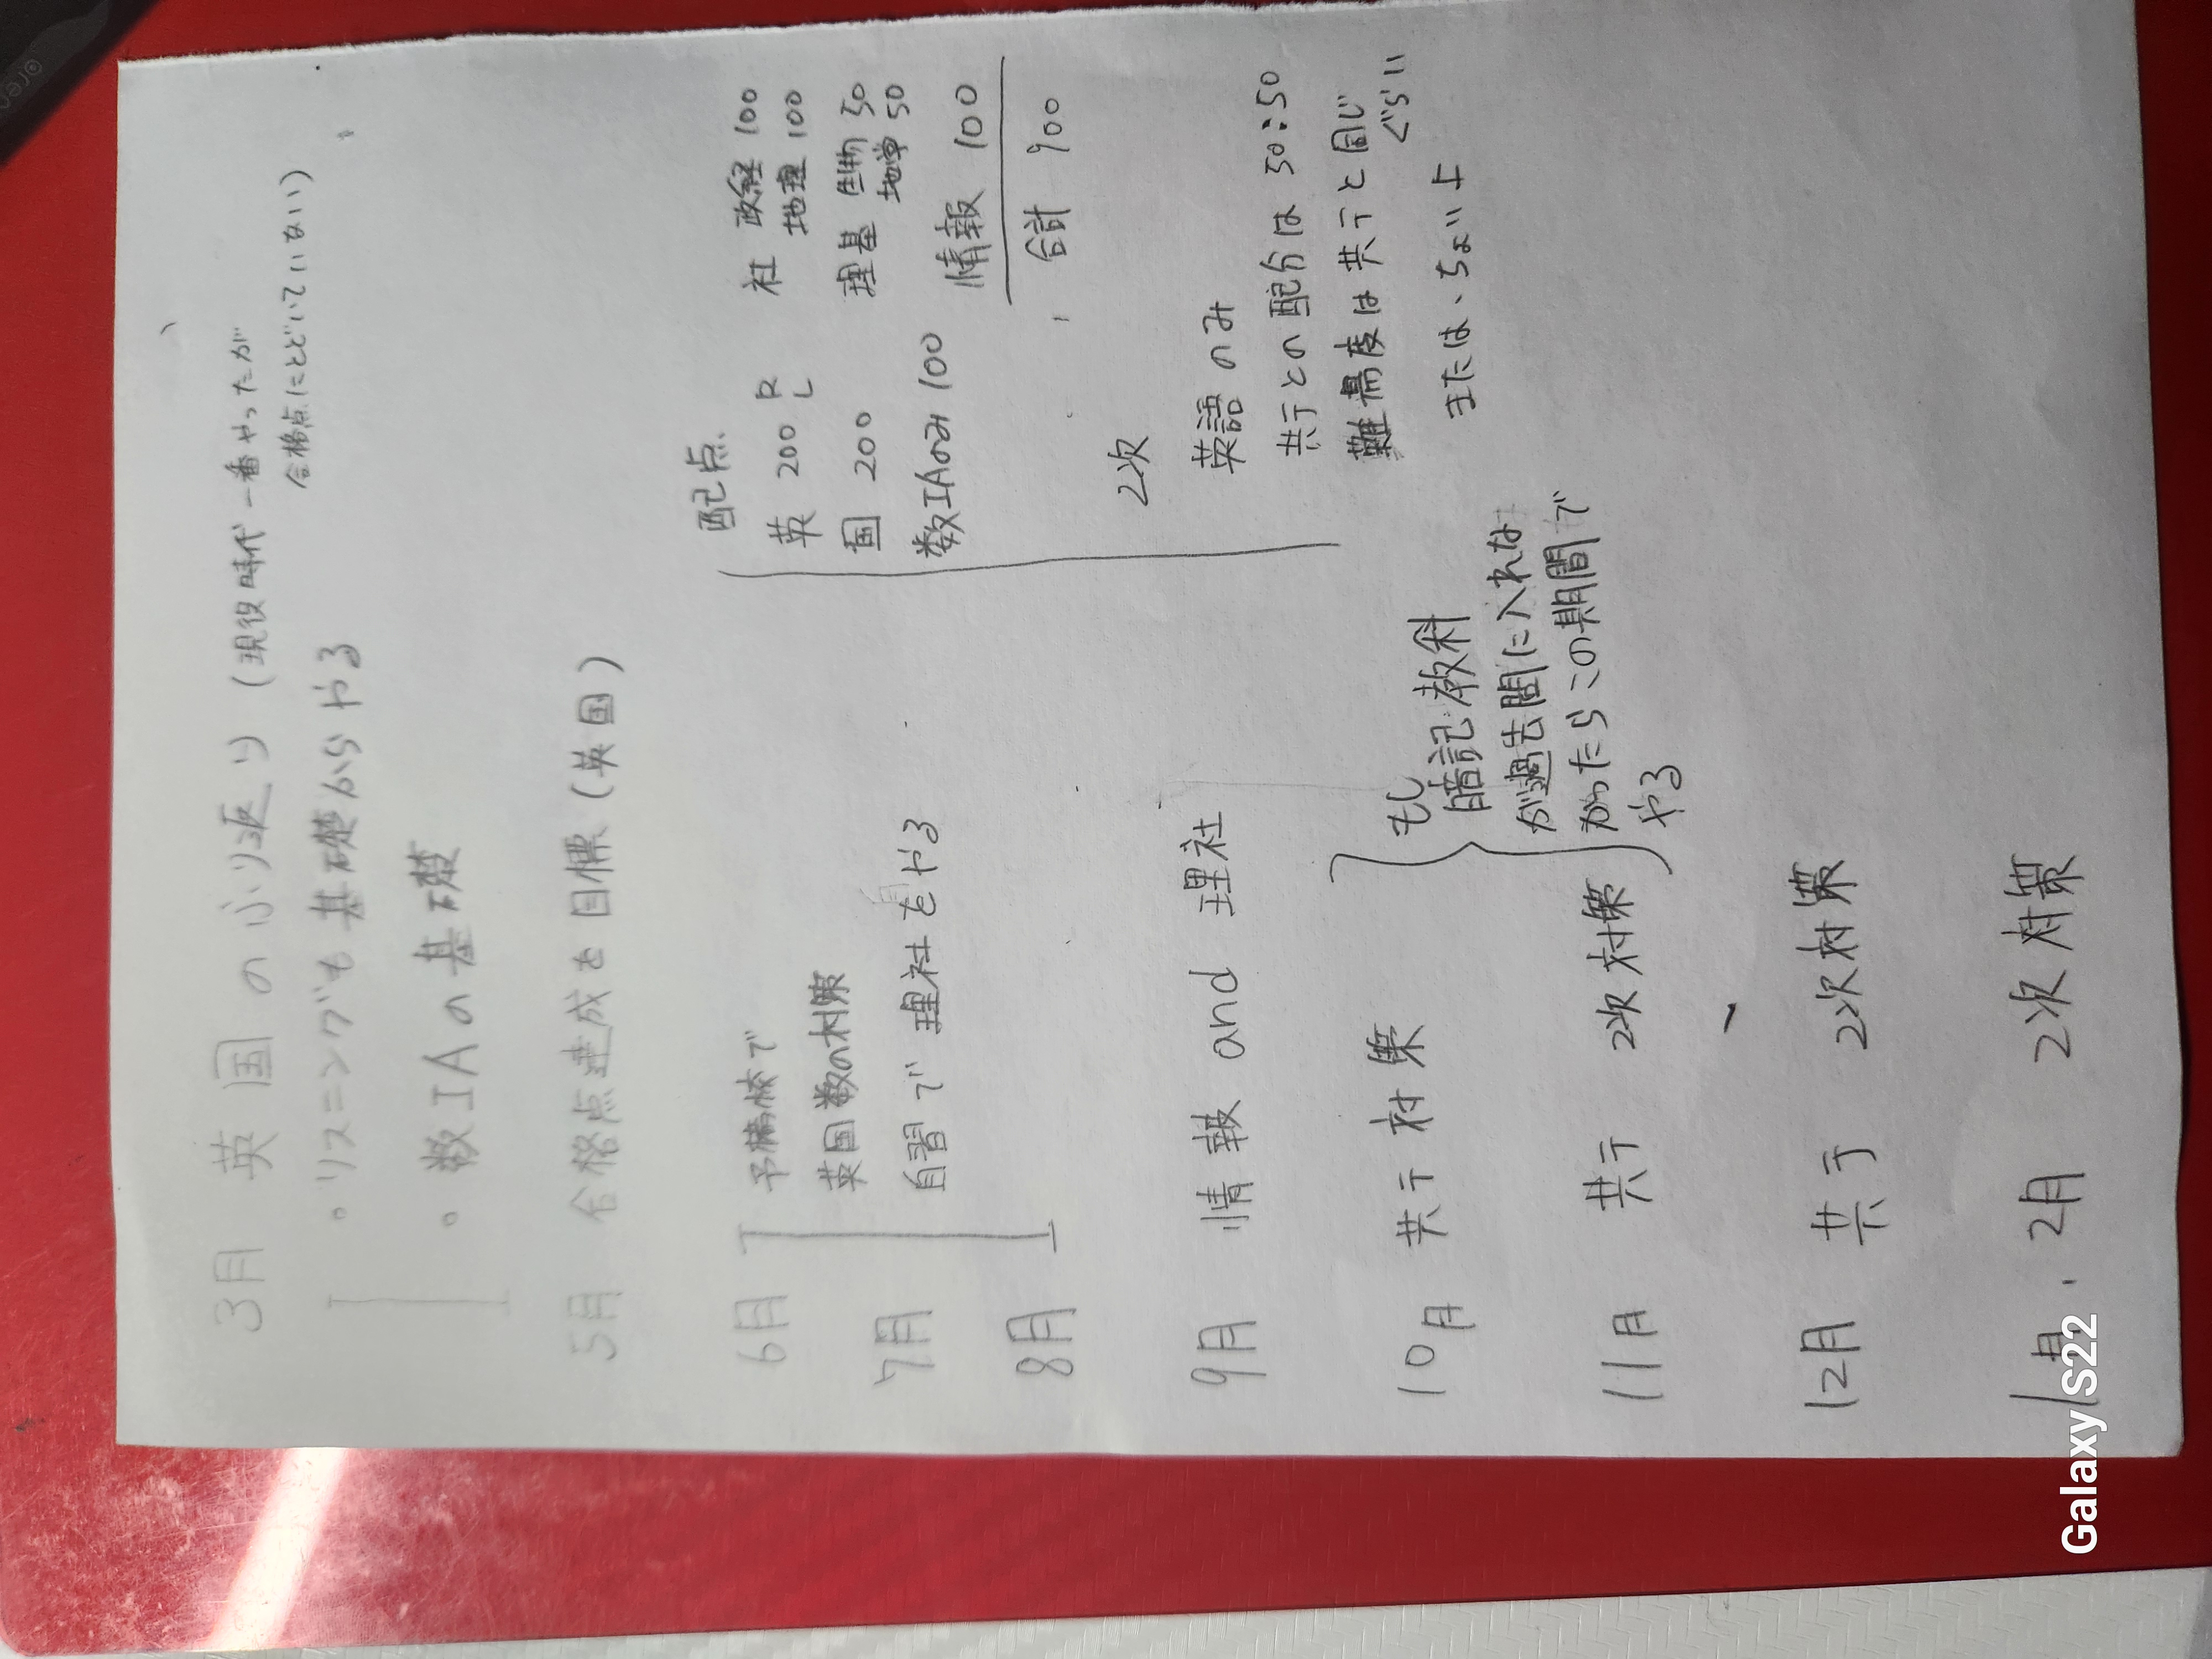 3月 英国のふり返り (現役時代一番やったが
合格点にとどいていない)
。リスニングも基礎からやる
。数IAの基礎
5月 合格点達成を目標(英国)
6月 予備校で
英国数の対策
7月 自習で理社をやる
8月
9月 情報 and 理社
10月 共テ対策
11月 共テ 2次対策
もし
暗記教科
が過去問に入れな
かったらこの期間で
やる
12月 共テ 2次対策
1月.2月 2次対策
配点
英 200 R
L
国 200
数IAのみ 100
社 政経 100
地理 100
理基 生物 50
地学 50
情報 100
合計 900
2次
英語のみ
共テとの配分は 50:50
難易度は共テと同じ
ぐらい
または、ちょい上
Galaxy S22